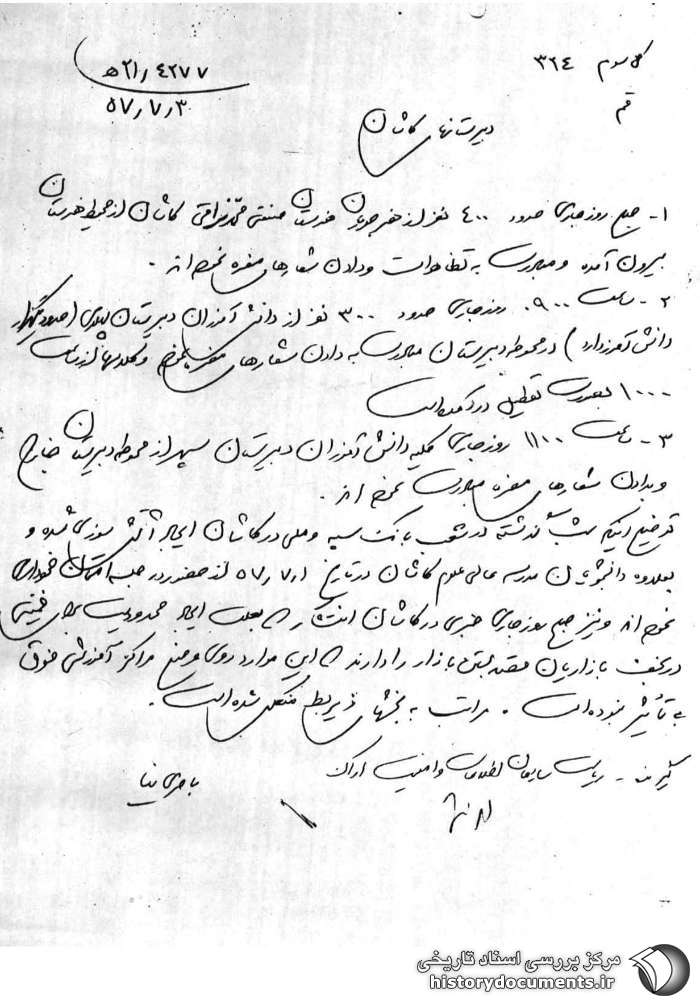 کل سوم ۳۲۴
۲۱/۴۲۷۷ ه
قم
۵۷/۷/۳
دبیرستانهای کاشان
۱- صبح روز جاری حدود ۴۰۰ نفر از هنرجویان هنرستان صنعتی محمد نراقی کاشان از محیط هنرستان
بیرون آمده و مبادرت به تظاهرات و دادن شعارهای مضره نموده‌اند.
۲- ساعت ۰۹۰۰ روز جاری حدود ۳۰۰ نفر از دانش آموزان دبیرستان پهلوی (حدود یکهزار
دانش آموز دارد) در محوطه دبیرستان مبادرت به دادن شعارهای مضره نموده و کلاسها از ساعت
۱۰۰۰ بصورت تعطیل درآمده است
۳- ساعت ۱۱۰۰ روز جاری کلیه دانش آموزان دبیرستان سپهر از محوطه دبیرستان خارج
و بدادن شعارهای مضره مبادرت نموده‌اند.
توضیح اینکه شب گذشته در شعب بانک سپه و ملی در کاشان ایجاد آتش سوزی شده و
بعلاوه دانشجویان مدرسه عالی علوم کاشان در تاریخ ۵۷/۷/۱ از حضور در جلسه امتحان خودداری
نموده‌اند و نیز صبح روز جاری خبری در کاشان انتشار که بعلت ایجاد محدودیت برای خمینی
در نجف بازاریان قصد بستن بازار را دارند که این موارد روی وضع مراکز آموزشی فوق
بی تأثیر نبوده است. مراتب به بخشهای ذیربط منعکس شده است.
گیرنده- ریاست سازمان اطلاعات و امنیت اراک
باصری نیا
مرکز بررسی اسناد تاریخی
historydocuments.ir